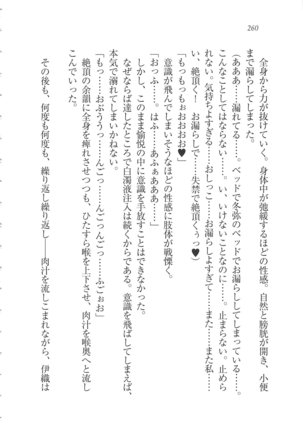 260
　全身から力が抜けていく。身体中が弛緩するほどの性感。自然と膀胱が開き、小便
まで漏らしてしまった。
（あああ……漏れてる……。ベッドで冬弥のベッドでお漏らししてしまっている……。
こんなことしてはならない……。い、いけないことなのに……。止まらない。止めら
れない。気持ちよすぎる……おしっこ……お漏らしよすぎて……また……また私……
い、絶頂く。お漏らしで……失禁で絶頂くうっ♥）
「もっもっもぉおおおお♥」
　意識が飛んでしまいそうなほどの性感に肢体が戦慄く。
「おっふ……はふ……あふぁああぁ……」
　しかし、このまま愉悦の中に意識を手放すことはできなかった。
　なぜならば、達したところで白濁液注入は続くからである。意識を飛ばしてしまえば、
本気で溺れてしまいかねない。
「もっ……おぶううっ……んごっんごっ……ふごぉお」
　絶頂の余韻に全身を痺れさせつつも、ひたすら喉を上下させ、肉汁を喉奥へと流し
こんでいった。
　その後も、何度も何度も、繰り返し繰り返し――肉汁を流しこまれながら、伊織は